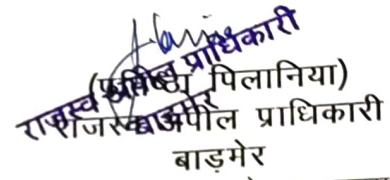 पिलानिया)
राजस्व अपील प्राधिकारी
बाड़मेर
राजस्व अपील प्राधिकारी
बाड़मेर